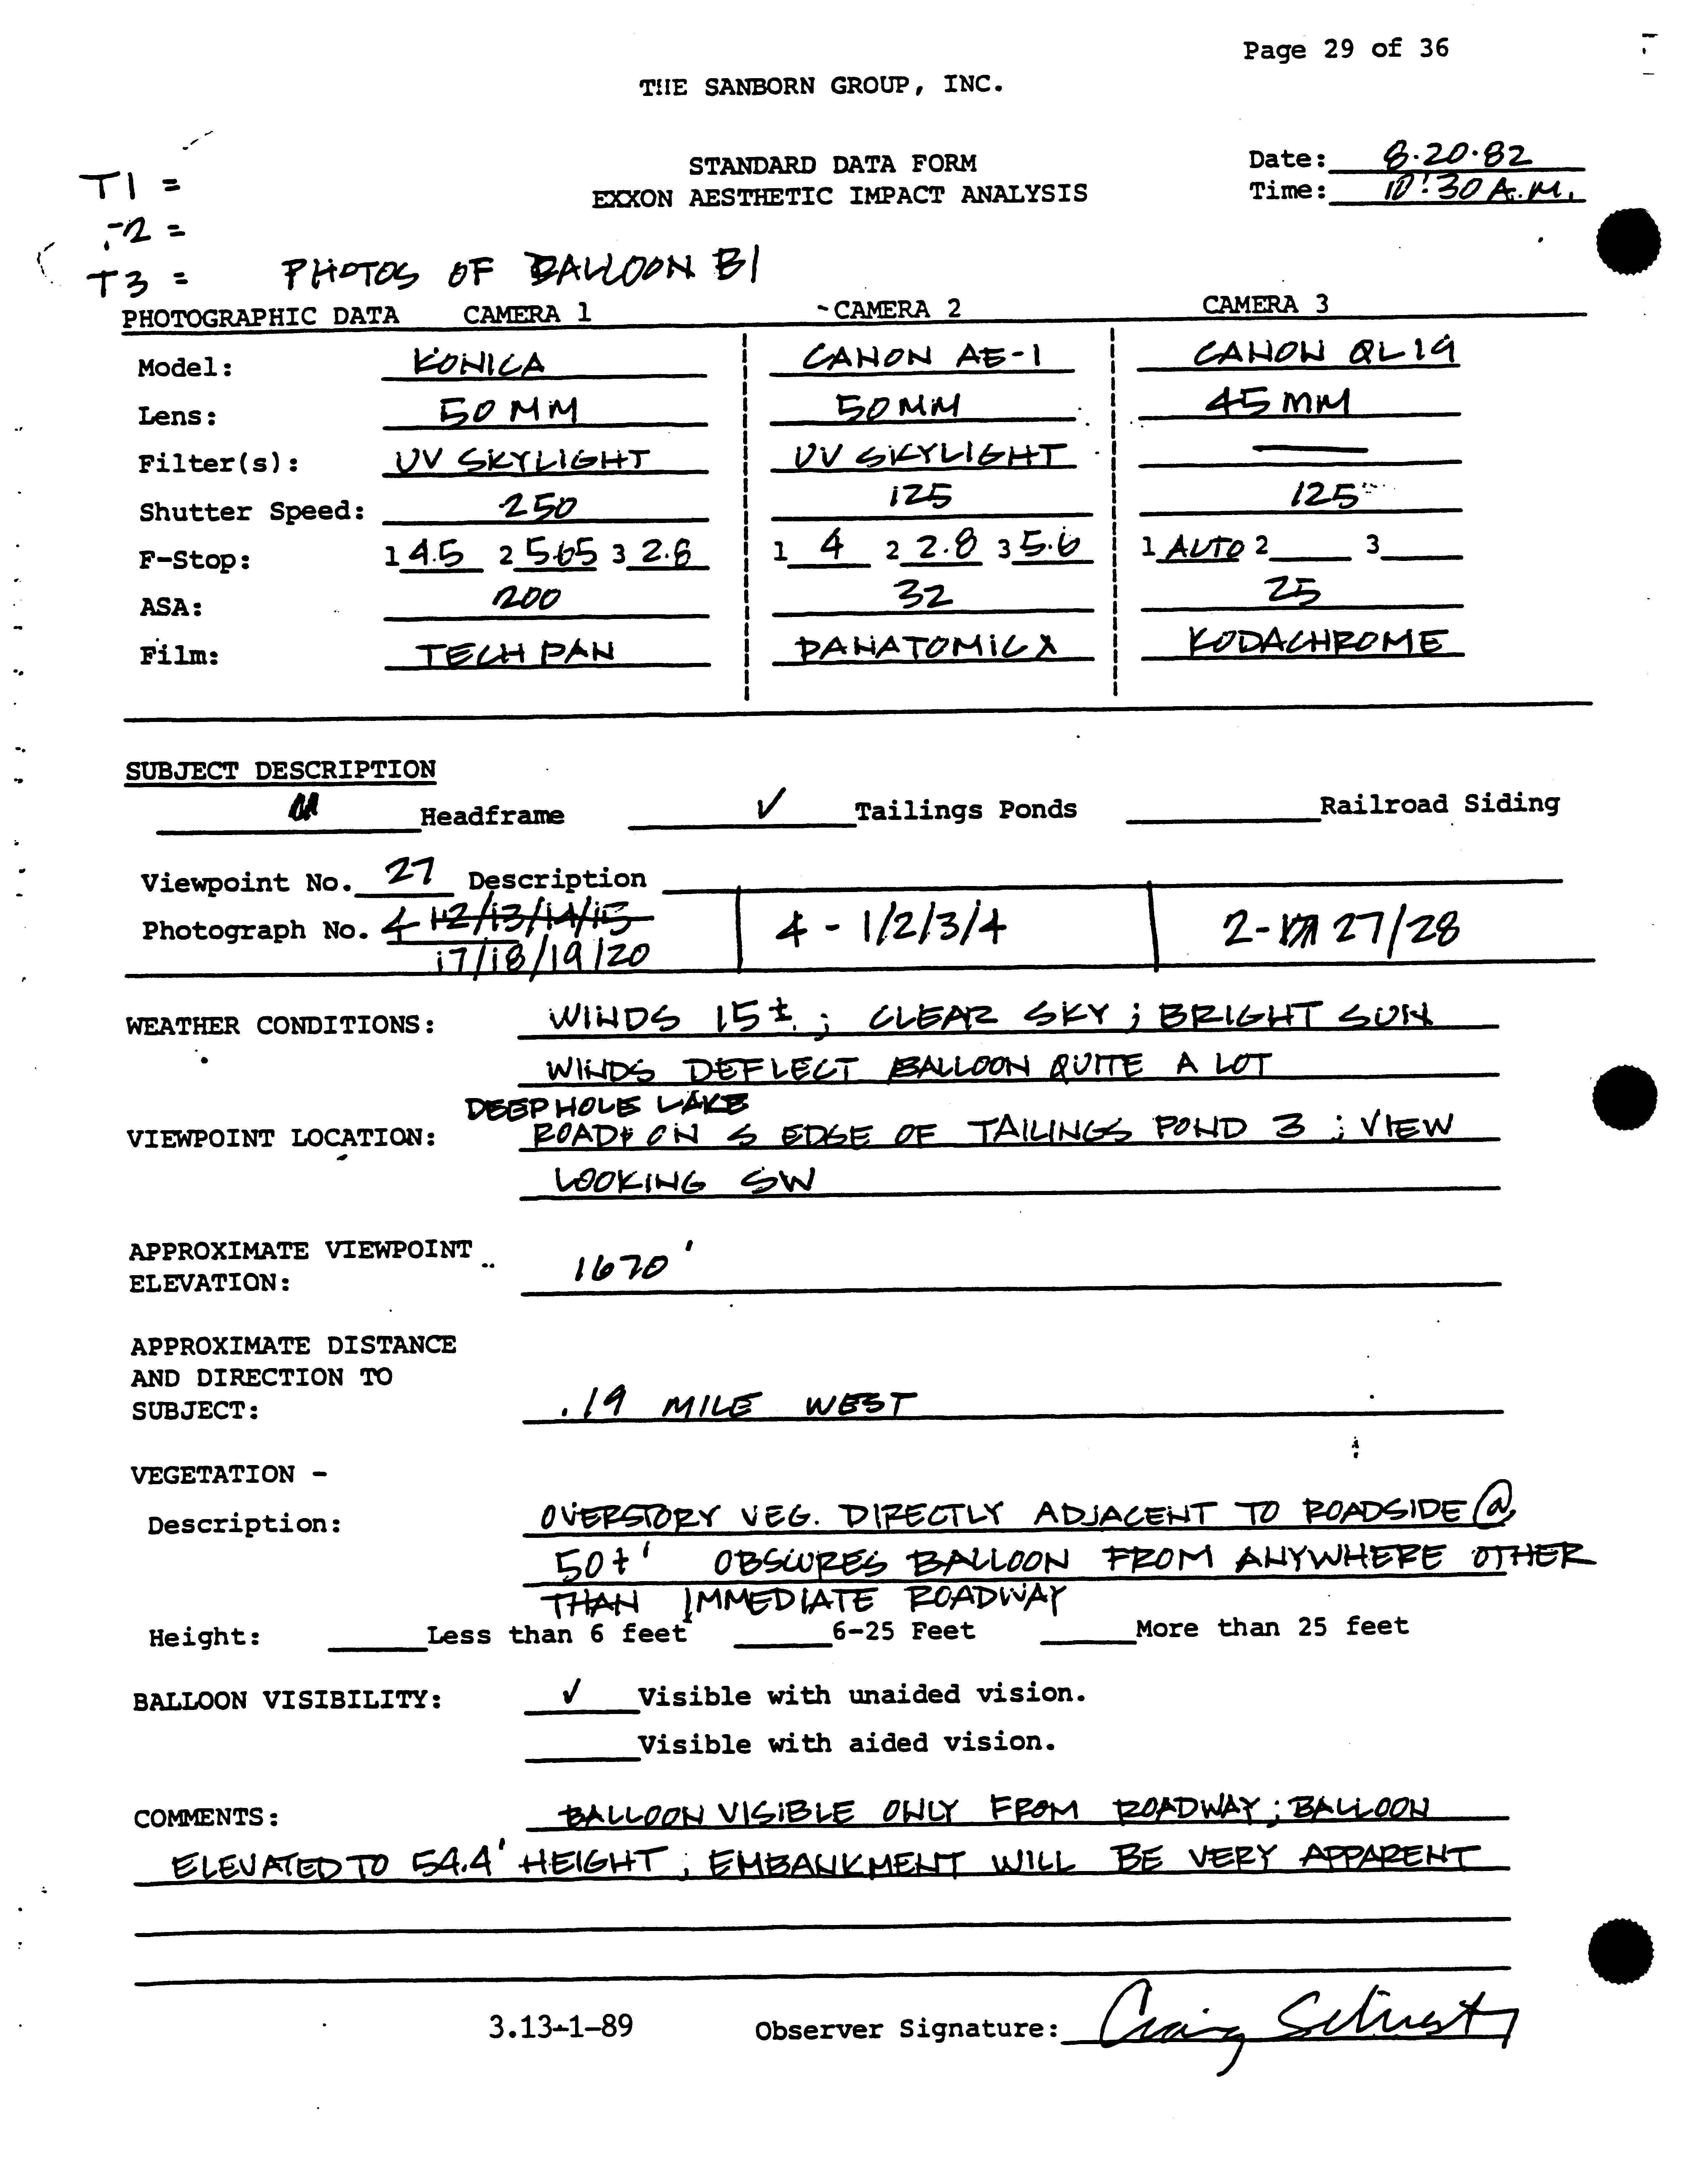 Page 29 of 36
THE SANBORN GROUP, INC.
STANDARD DATA FORM
EXXON AESTHETIC IMPACT ANALYSIS
Date: 8·20·82
Time: 10:30 A.M.
T1 =
T2 =
T3 =
PHOTOS OF BALLOON B1
PHOTOGRAPHIC DATA CAMERA 1 CAMERA 2 CAMERA 3
Model: KONICA CANON AE-1 CANON QL19
Lens: 50 MM 50MM 45 MM
Filter(s): UV SKYLIGHT UV SKYLIGHT —
Shutter Speed: 250 125 125
F-Stop: 1 4.5 2 3 2.8 1 4 2 2.8 3 5.6 1 AUTO 2 3
ASA: 200 32 25
Film: TECH PAN PANATOMIC X KODACHROME
SUBJECT DESCRIPTION
Headframe ✓ Tailings Ponds Railroad Siding
Viewpoint No. 27 Description
Photograph No. 4 12/13/14/15 4 - 1/2/3/4 2- 27/28
17/18/19/20
WEATHER CONDITIONS: WINDS 15±; CLEAR SKY; BRIGHT SUN
WINDS DEFLECT BALLOON QUITE A LOT
DEEP HOLE LAKE
VIEWPOINT LOCATION: ROAD ON S EDGE OF TAILINGS POND 3; VIEW
LOOKING SW
APPROXIMATE VIEWPOINT
ELEVATION: 1670'
APPROXIMATE DISTANCE
AND DIRECTION TO
SUBJECT: .19 MILE WEST
VEGETATION -
Description: OVERSTORY VEG. DIRECTLY ADJACENT TO ROADSIDE @
50±' OBSCURES BALLOON FROM ANYWHERE OTHER
THAN IMMEDIATE ROADWAY
Height: Less than 6 feet 6-25 Feet More than 25 feet
BALLOON VISIBILITY: ✓ Visible with unaided vision.
Visible with aided vision.
COMMENTS: BALLOON VISIBLE ONLY FROM ROADWAY; BALLOON
ELEVATED TO 54.4' HEIGHT; EMBANKMENT WILL BE VERY APPARENT
3.13-1-89 Observer Signature: Craig